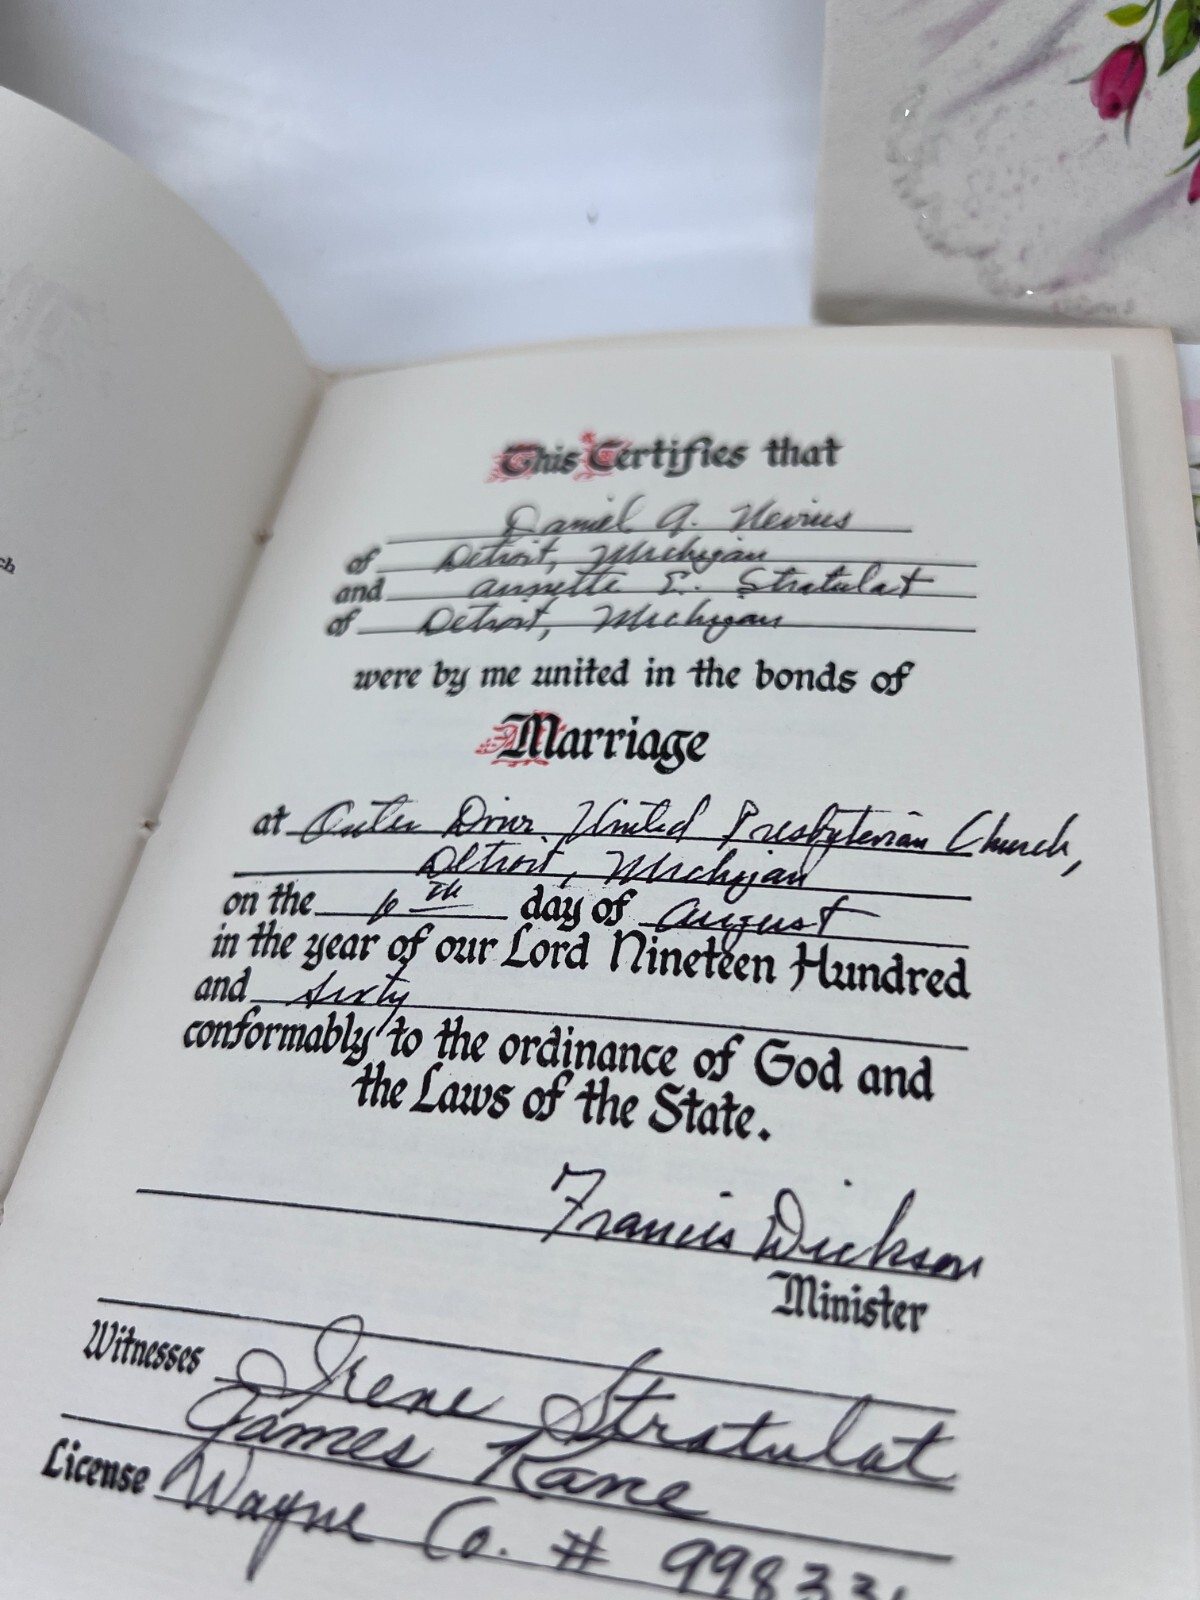 ch
This Certifies that
Daniel A. Nevius
of Detroit, Michigan
and Annette E. Stratulat
of Detroit, Michigan
were by me united in the bonds of
Marriage
at Outer Drive United Presbyterian Church,
Detroit, Michigan
on the 6th day of August
in the year of our Lord Nineteen Hundred
and sixty
conformably to the ordinance of God and
the Laws of the State.
Francis Dickson
Minister
Witnesses Irene Stratulat
James Kane
License Wayne Co. # 99833